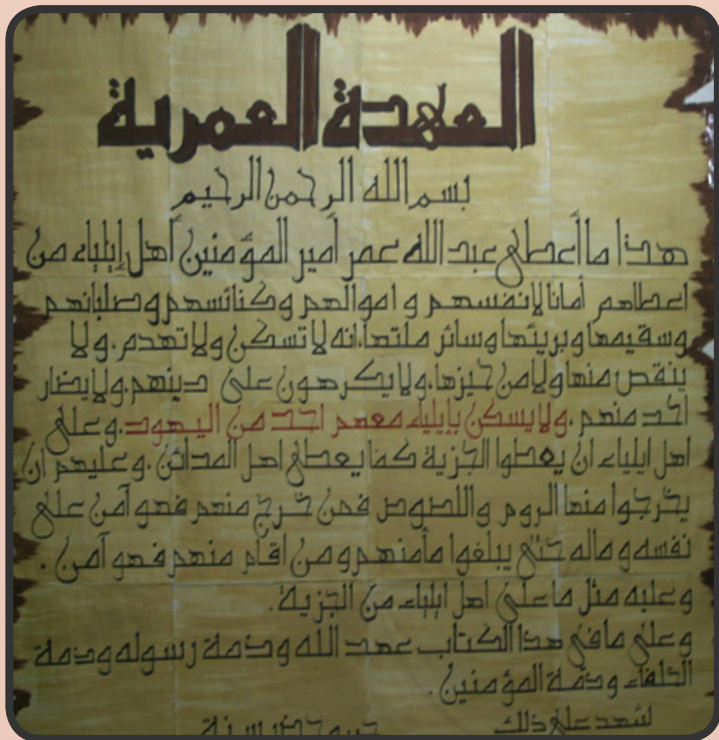 العهدة العمرية
بسم الله الرحمن الرحيم
هذا ما أعطى عبد الله عمر أمير المؤمنين أهل إيلياء من
اعطاهم أمانا لانفسهم و اموالهم وكنائسهم وصلبانهم
وسقيمها وبريئها وسائر ملتها، انه لا تسكن ولا تهدم. ولا
ينقص منها ولا من حيزها، ولا يكرهون على دينهم. ولا يضار
احد منهم. ولا يسكن بإيلياء معهم احد من اليهود. وعلى
اهل ايلياء ان يعطوا الجزية كما يعطي اهل المدائن. وعليهم ان
يخرجوا منها الروم واللصوص فمن خرج منهم فهو آمن على
نفسه وماله حتى يبلغوا مأمنهم ومن اقام منهم فهو آمن.
وعليه مثل ما على اهل ايلياء من الجزية.
وعلى ما في هذا الكتاب عهد الله وذمة رسوله وذمة
الخلفاء وذمة المؤمنين.
لشهد على ذلك سنة